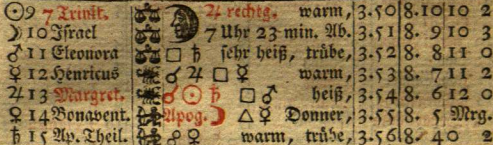 ☉ 9 7 Trinit. ♃ rechtg. warm, 3.50 8.10 10 2
☽ 10 Israel 7 Uhr 23 min. Ab. 3.51 8. 9 10 3
♂ 11 Eleonora □ ♄ sehr heiß, trübe, 3.52 8. 8 11 0
☿ 12 Henricus ☌ ♃ □ ☿ warm, 3.53 8. 7 11 2
♃ 13 Margret. ☌ ☉ ♄ □ ♂ heiß, 3.54 8. 6 12 0
♀ 14 Bonavent. Apog. ☽ △ ☿ Donner, 3.55 8. 5 Mrg.
♄ 15 Ap. Theil. ☍ ♀ warm, trübe, 3.56 8. 4 0 2